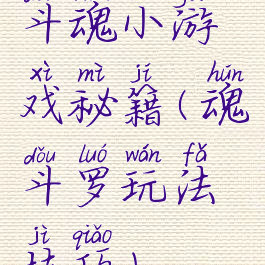 斗魂小游
xì mì jí hún
戏秘籍(魂
dǒu luó wán fǎ
斗罗玩法
jì qiǎo
技巧)